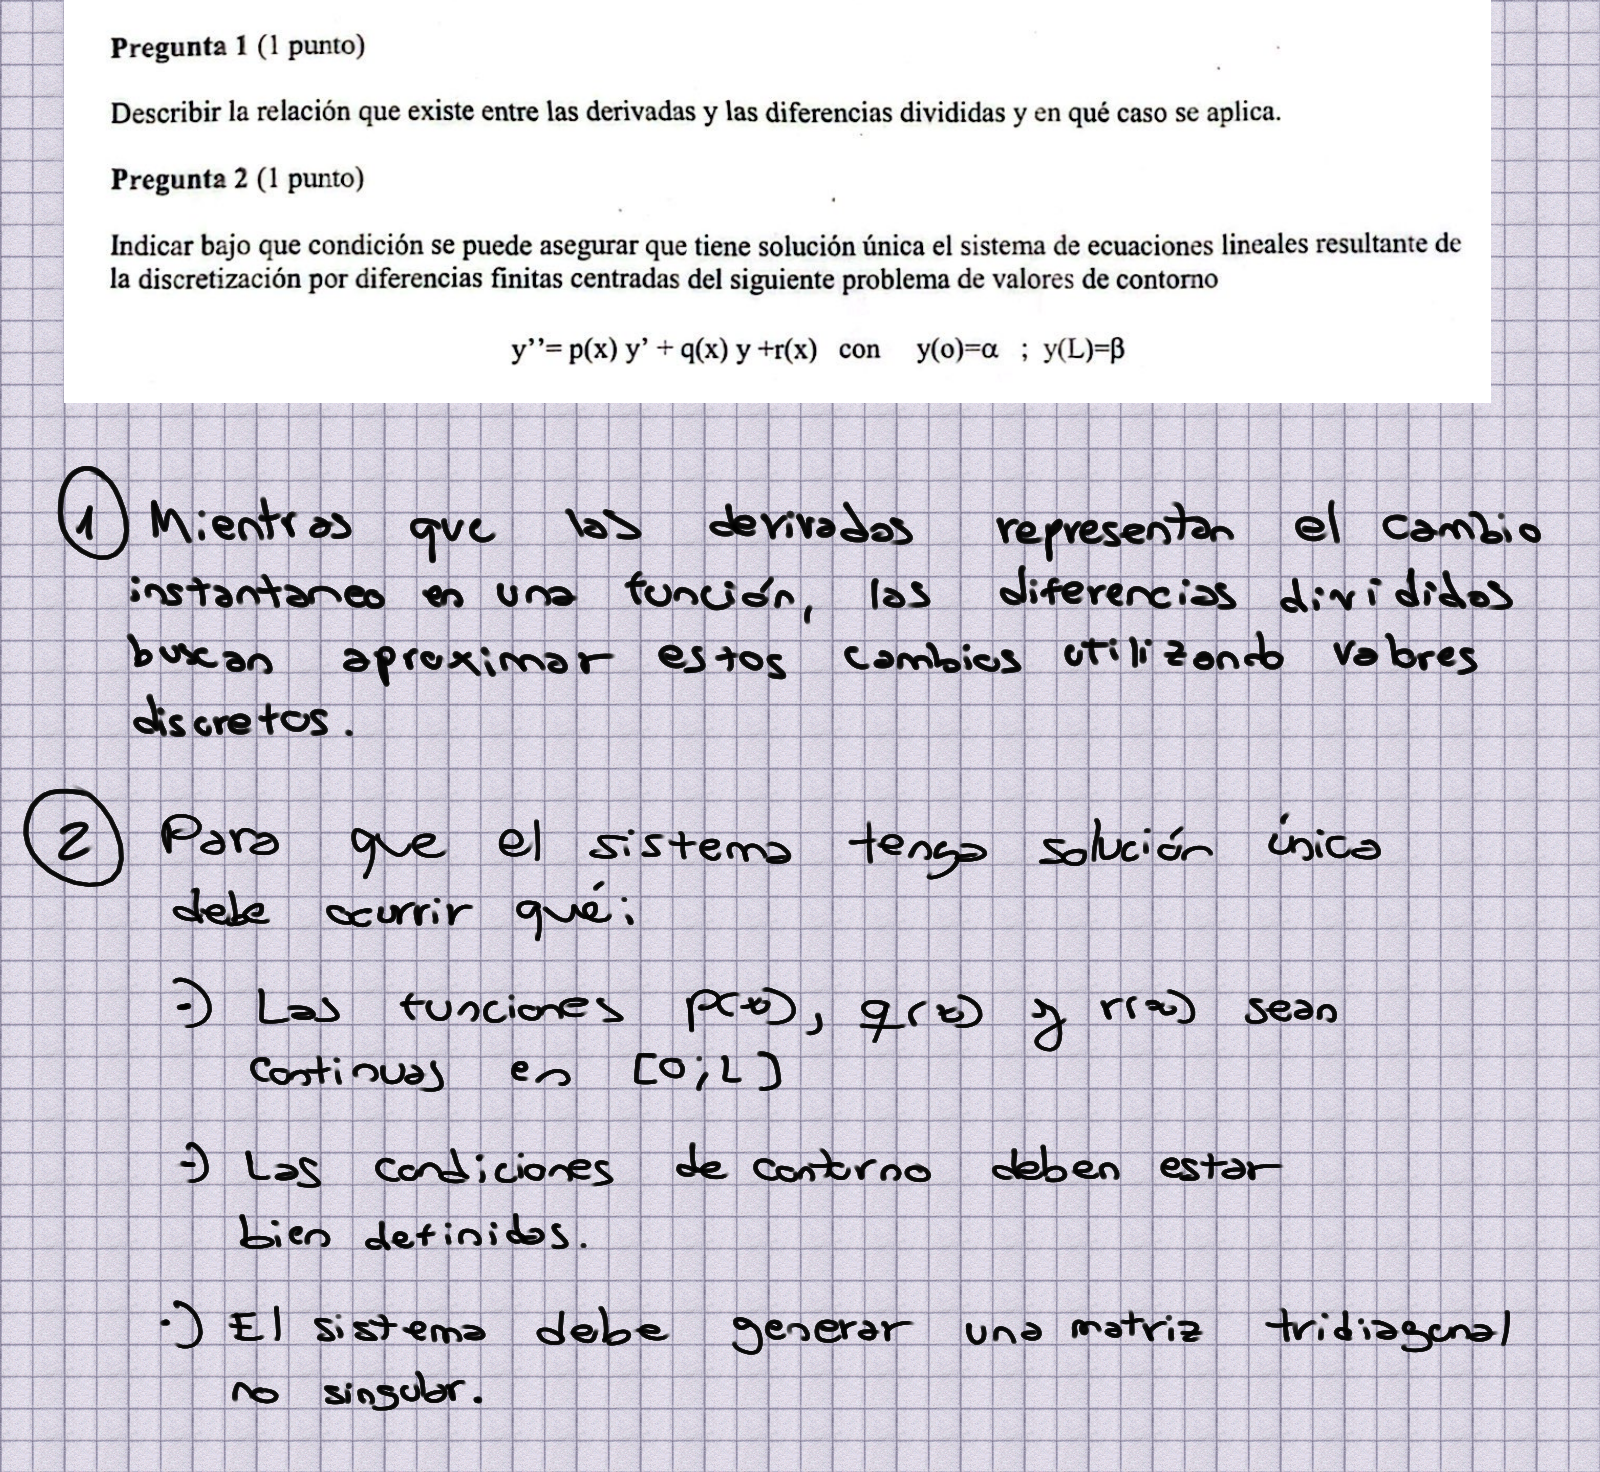 Pregunta 1 (1 punto)
Describir la relación que existe entre las derivadas y las diferencias divididas y en qué caso se aplica.
Pregunta 2 (1 punto)
Indicar bajo que condición se puede asegurar que tiene solución única el sistema de ecuaciones lineales resultante de
la discretización por diferencias finitas centradas del siguiente problema de valores de contorno
y’’= p(x) y’ + q(x) y +r(x) con y(o)=α ; y(L)=β
1 Mientras que las derivadas representan el cambio
instantaneo en una función, las diferencias divididas
buscan aproximar estos cambios utilizando valores
discretos.
2 Para que el sistema tenga solución única
debe ocurrir qué:
·) Las funciones p(x), q(x) y r(x) sean
continuas en [0;L]
·) Las condiciones de contorno deben estar
bien definidas.
·) El sistema debe generar una matriz tridiagonal
no singular.